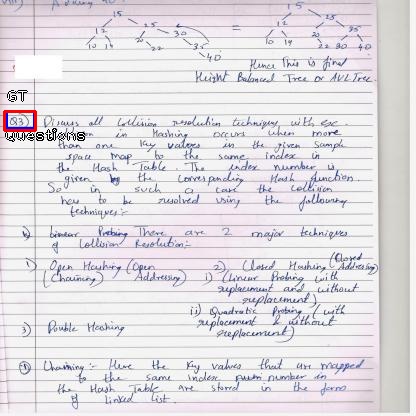 15 15
12 25 30 = 12 25
10 14 22 35 10 14 20 35
40 22 30 40
Hence This is final
Height Balanced Tree or AVL Tree.
GT
Q3) Discuss all Collision resolution techniques with ex:-
Questions in Hashing occurs when more
than one Key values in the given sample
space map to the same index in
the Hash Table. The index number is
given by the corresponding Hash function.
So in such a case the collision
has to be resolved using the following
techniques:-
Linear Probing There are 2 major techniques
of Collision Resolution:-
1) Open Hashing (Open 2) Closed Hashing (Closed
(Chaining) Addressing) i) (Linear Probing with Addressing)
replacement and without
replacement)
ii) Quadratic Probing (with
3) Double Hashing replacement & without
replacement)
1) Chaining:- Here the Key values that are mapped
to the same index number in
the Hash Table are stored in the form
of linked list.